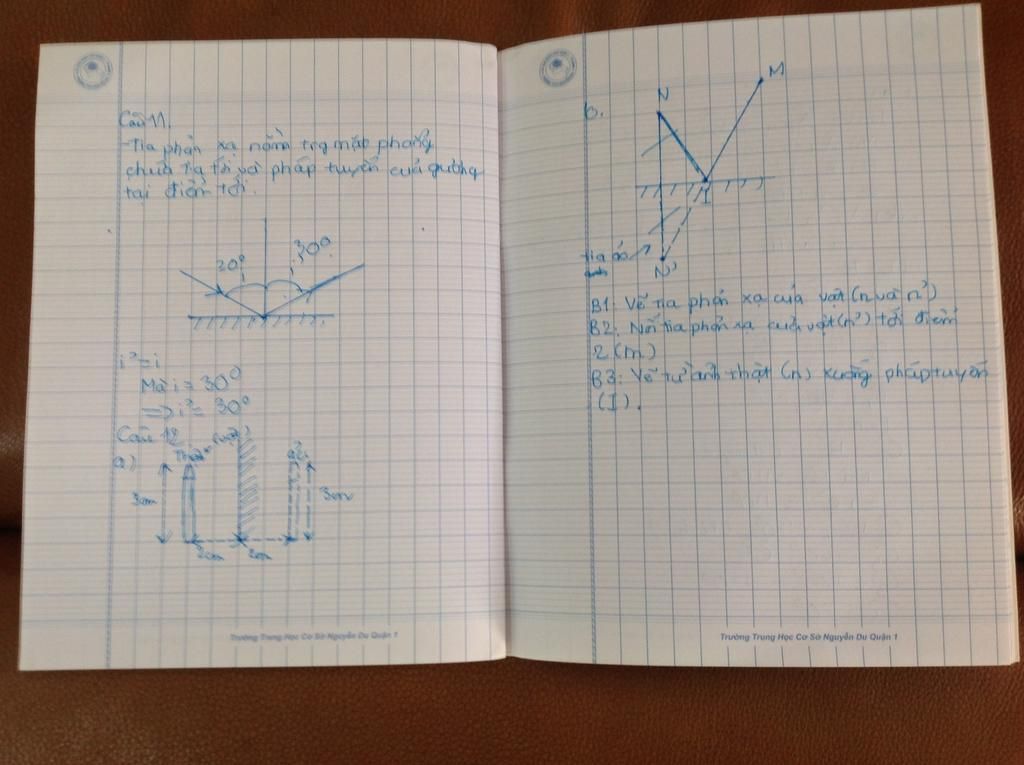 Câu 11.
- Tia phản xạ nằm trg mặt phẳng
chứa tia tới và pháp tuyến của gương
tại điểm tới.
30° 30°
i' = i
Mà i = 30°
=> i' = 30°
Câu 12
a)
(vật)
3cm 3cm
2cm 2cm
Trường Trung Học Cơ Sở Nguyễn Du Quận 1
b.
N
M
I
tia ảo
N'
B1: Vẽ tia phản xạ của vật (n và n')
B2: Nối tia phản xạ của vật (n') tới điểm
2 (m)
B3: Vẽ từ ảnh thật (n) xuống pháp tuyến
(I).
Trường Trung Học Cơ Sở Nguyễn Du Quận 1